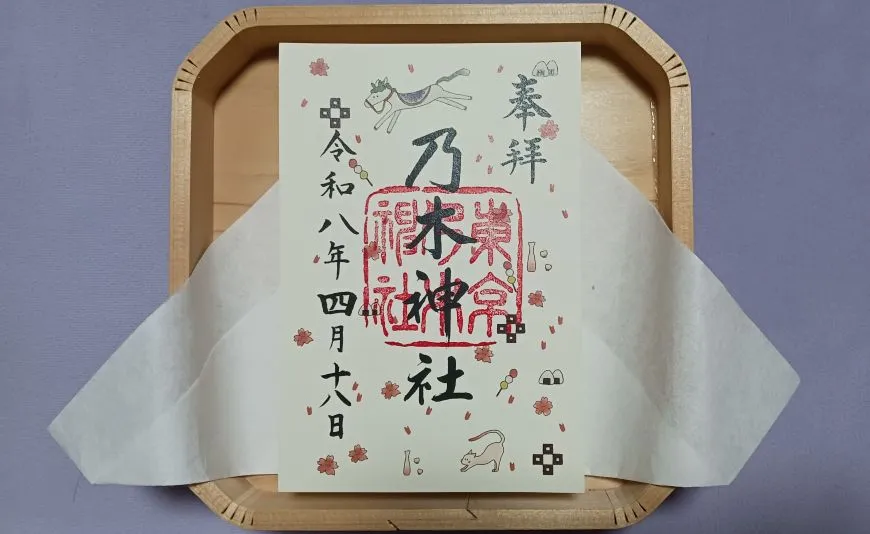 奉拝
乃木神社
東京
乃木
神社
令和八年四月十八日